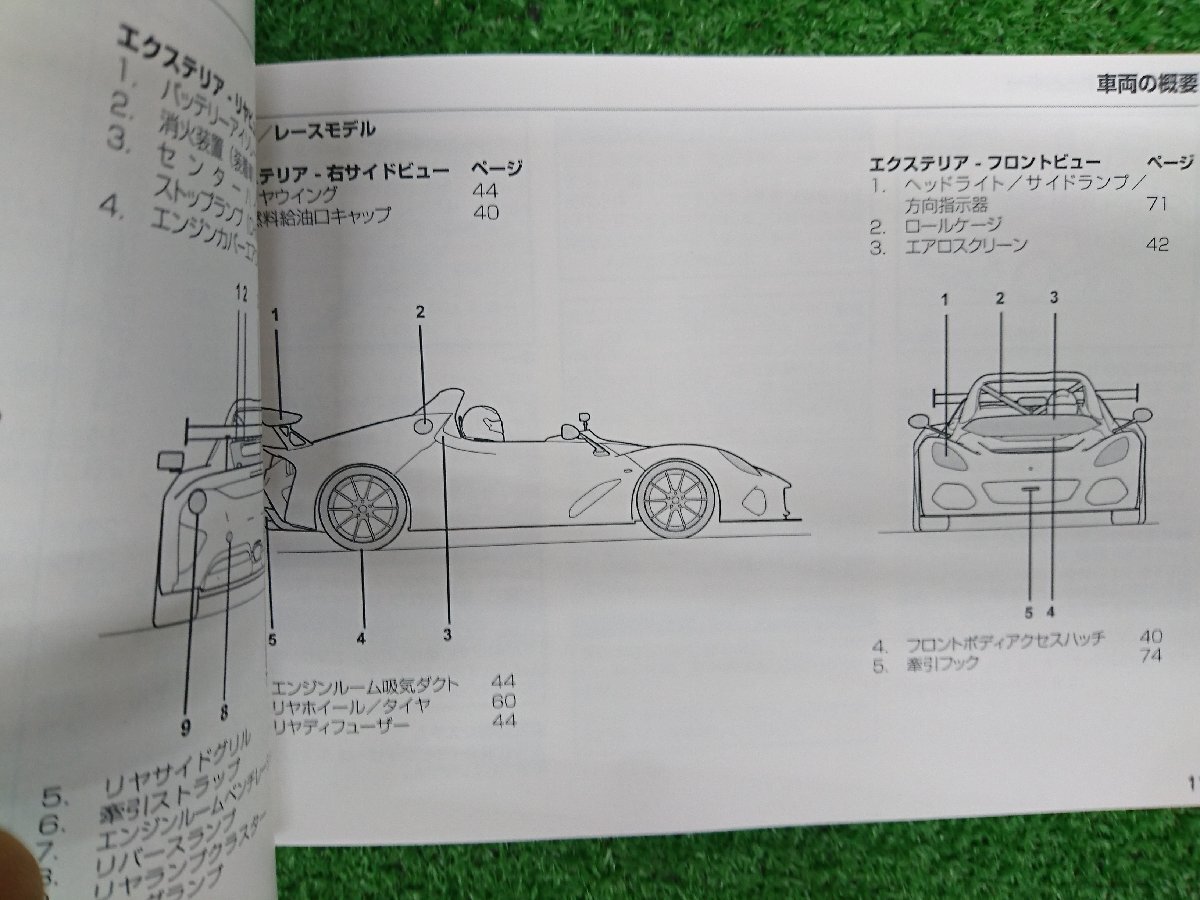 エクステリア - リヤビ
1. バッテリーアイソレー
2. 消火装置 (装着車
3. センターハ
ストップランプ
4. エンジンカバーエア
12
9
8
5. リヤサイドグリル
6. 牽引ストラップ
7. エンジンルームベンチレー
リバースランプ
リヤランプクラスター
グランプ
車両の概要
／レースモデル
テリア - 右サイドビュー ページ
ヤウイング 44
燃料給油口キャップ 40
1
2
5
4
3
エンジンルーム吸気ダクト 44
リヤホイール／タイヤ 60
リヤディフューザー 44
エクステリア - フロントビュー ページ
1. ヘッドライト／サイドランプ／
方向指示器 71
2. ロールケージ
3. エアロスクリーン 42
1 2 3
5 4
4. フロントボディアクセスハッチ 40
5. 牽引フック 74
1